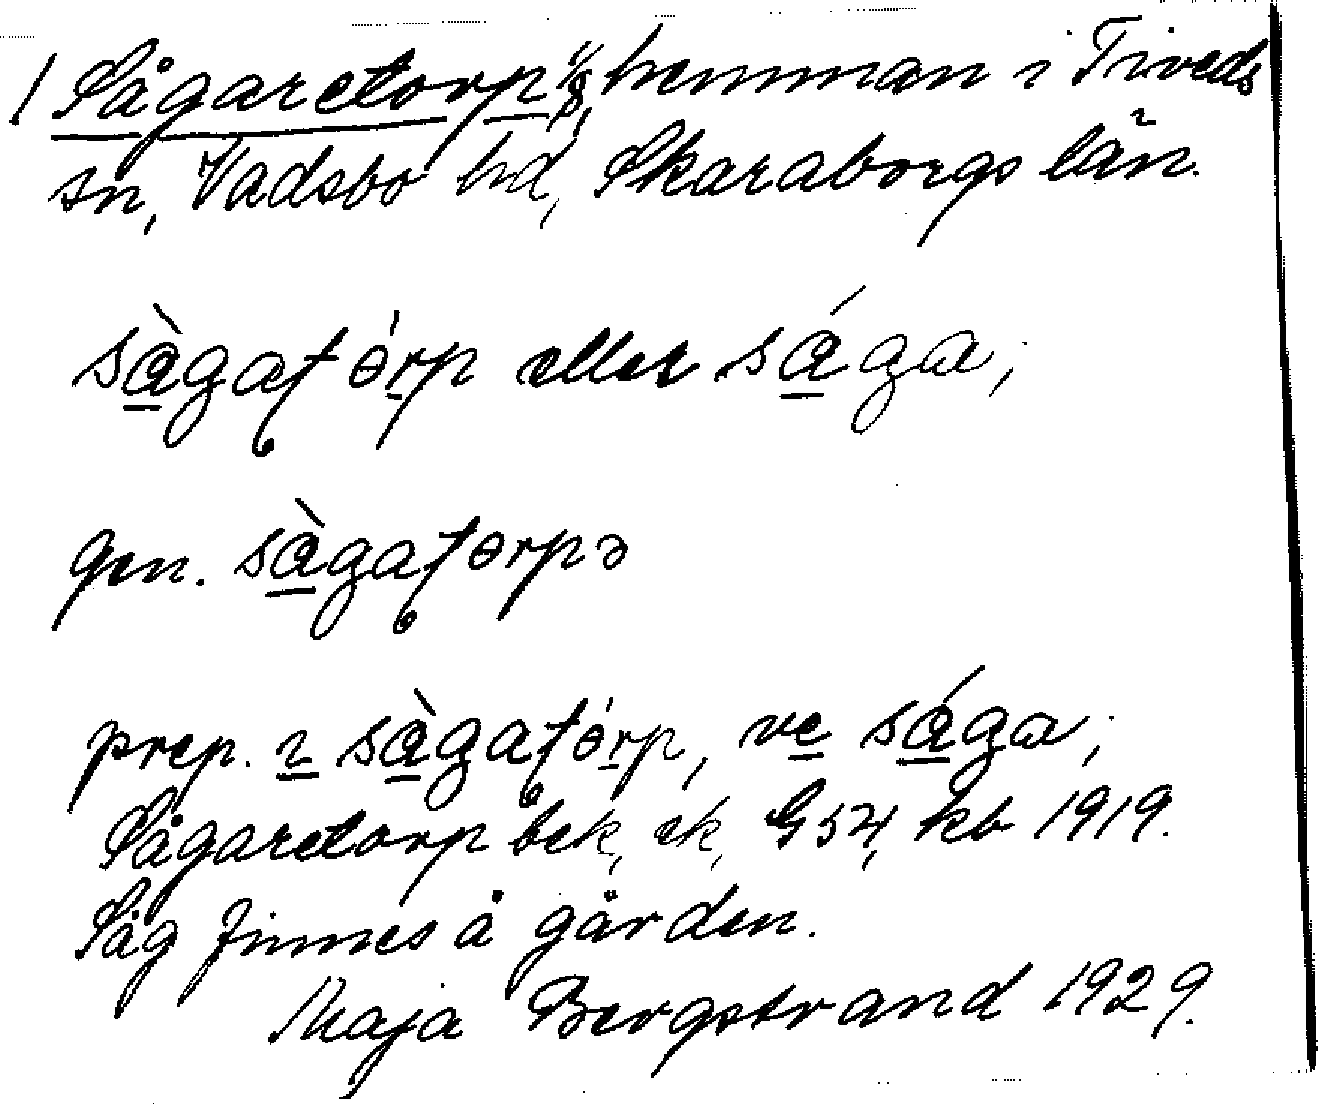 1 Sågaretorp 1/8, hemman i Tiveds
sn, Vadsbo hd, Skaraborgs län.
sàgaʈɵ́rp eller ságɑ;
gen. sàgaʈɵrpə
prep. ɩ sàgaʈɵ́rp, ve ságɑ;
Sågaretorp bek, ek, G 54, kb 1919.
Såg finnes å gården.
Maja Bergstrand 1929.